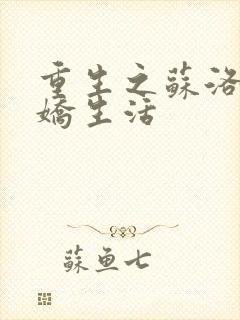 重生之蘇洛
嬌生活
蘇魚七